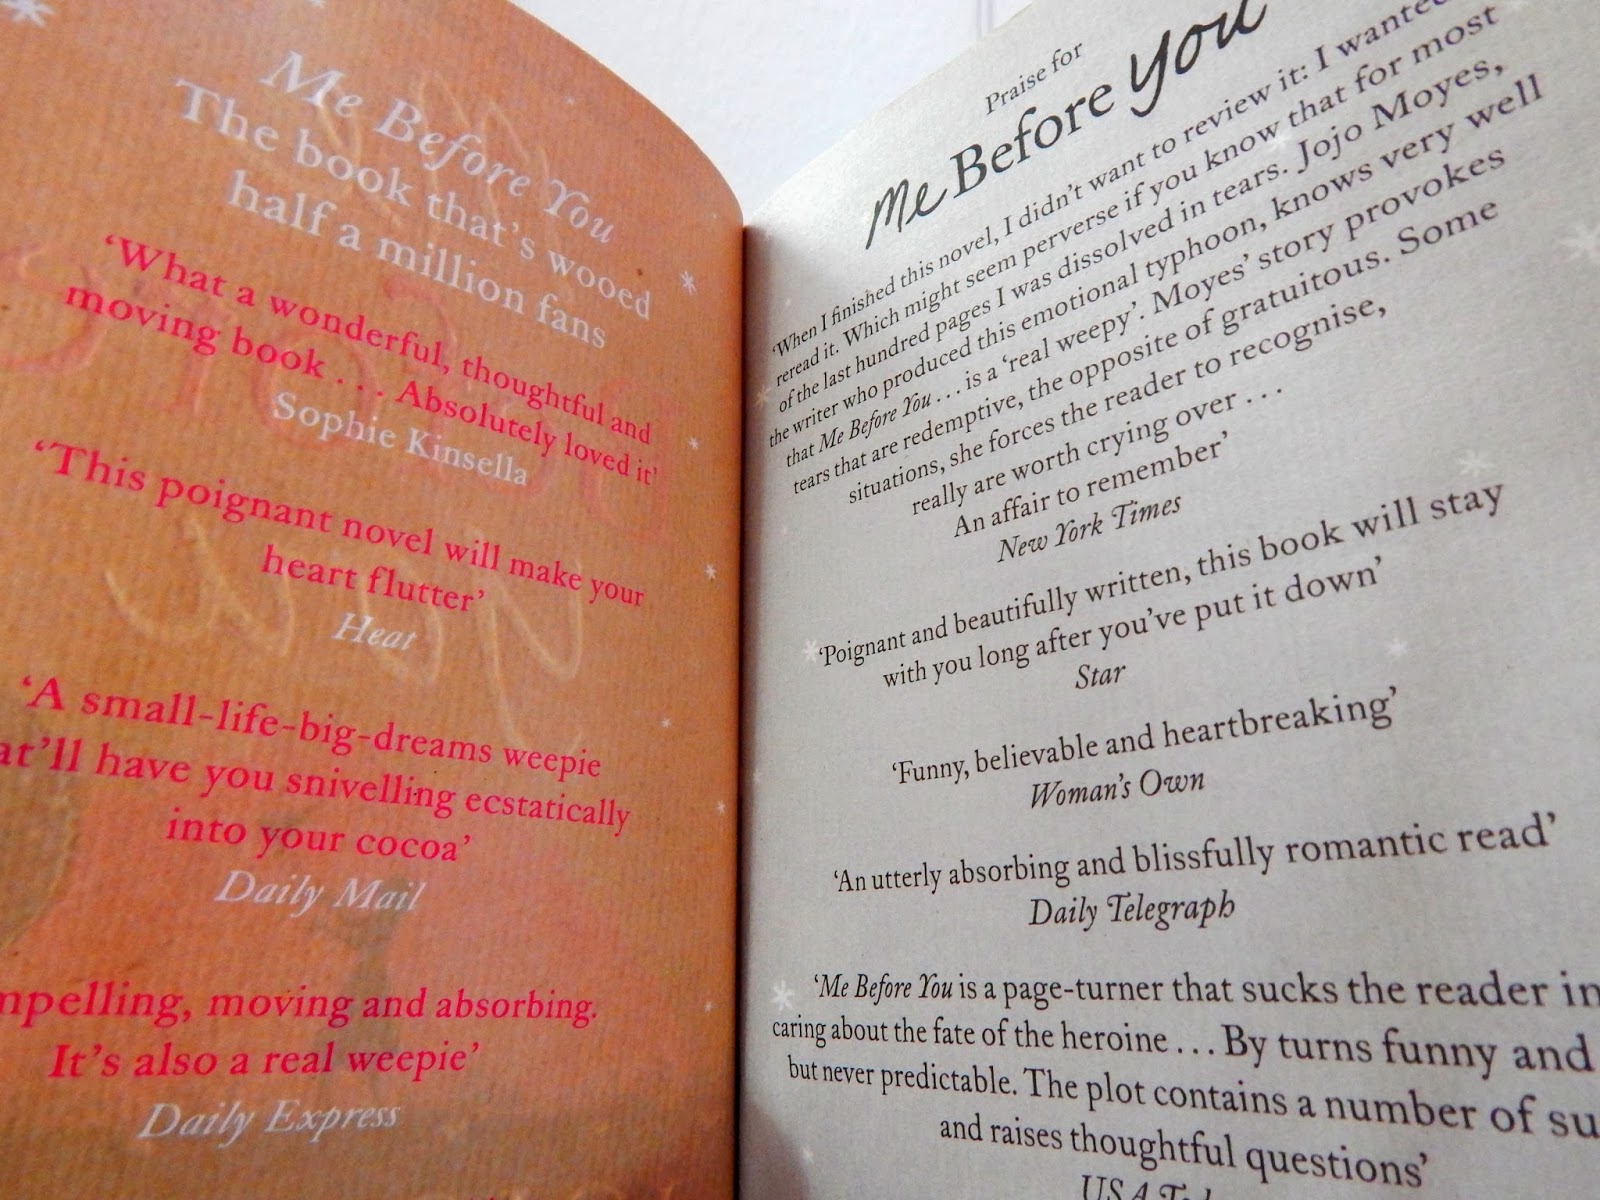 Me Before You
The book that's wooed
half a million fans
‘What a wonderful, thoughtful and
moving book . . . Absolutely loved it’
Sophie Kinsella
‘This poignant novel will make your
heart flutter’
Heat
‘A small-life-big-dreams weepie
at’ll have you snivelling ecstatically
into your cocoa’
Daily Mail
mpelling, moving and absorbing.
It’s also a real weepie’
Daily Express
Praise for
Me Before You
‘When I finished this novel, I didn’t want to review it: I wanted
reread it. Which might seem perverse if you know that for most
of the last hundred pages I was dissolved in tears. Jojo Moyes,
the writer who produced this emotional typhoon, knows very well
that Me Before You . . . is a ‘real weepy’. Moyes’ story provokes
tears that are redemptive, the opposite of gratuitous. Some
situations, she forces the reader to recognise,
really are worth crying over . . .
An affair to remember’
New York Times
‘Poignant and beautifully written, this book will stay
with you long after you’ve put it down’
Star
‘Funny, believable and heartbreaking’
Woman’s Own
‘An utterly absorbing and blissfully romantic read’
Daily Telegraph
‘Me Before You is a page-turner that sucks the reader in
caring about the fate of the heroine . . . By turns funny and
but never predictable. The plot contains a number of su
and raises thoughtful questions’
USA